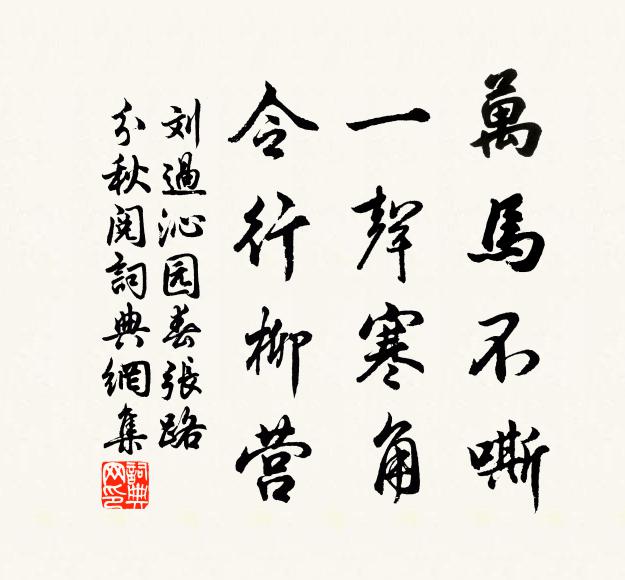 萬馬不嘶
一聲寒角
令行柳营
刘過沁园春張路
分秋阅詞典網集
詞典网印